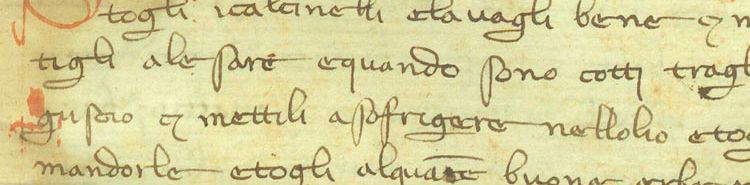 togli icalcinelli elavagli bene ⁊ m
tigli alesare equando sono cotti tragl
guscio ⁊ mettili asofrigere nellolio etog
mandorle etogli alquāte buone erbe